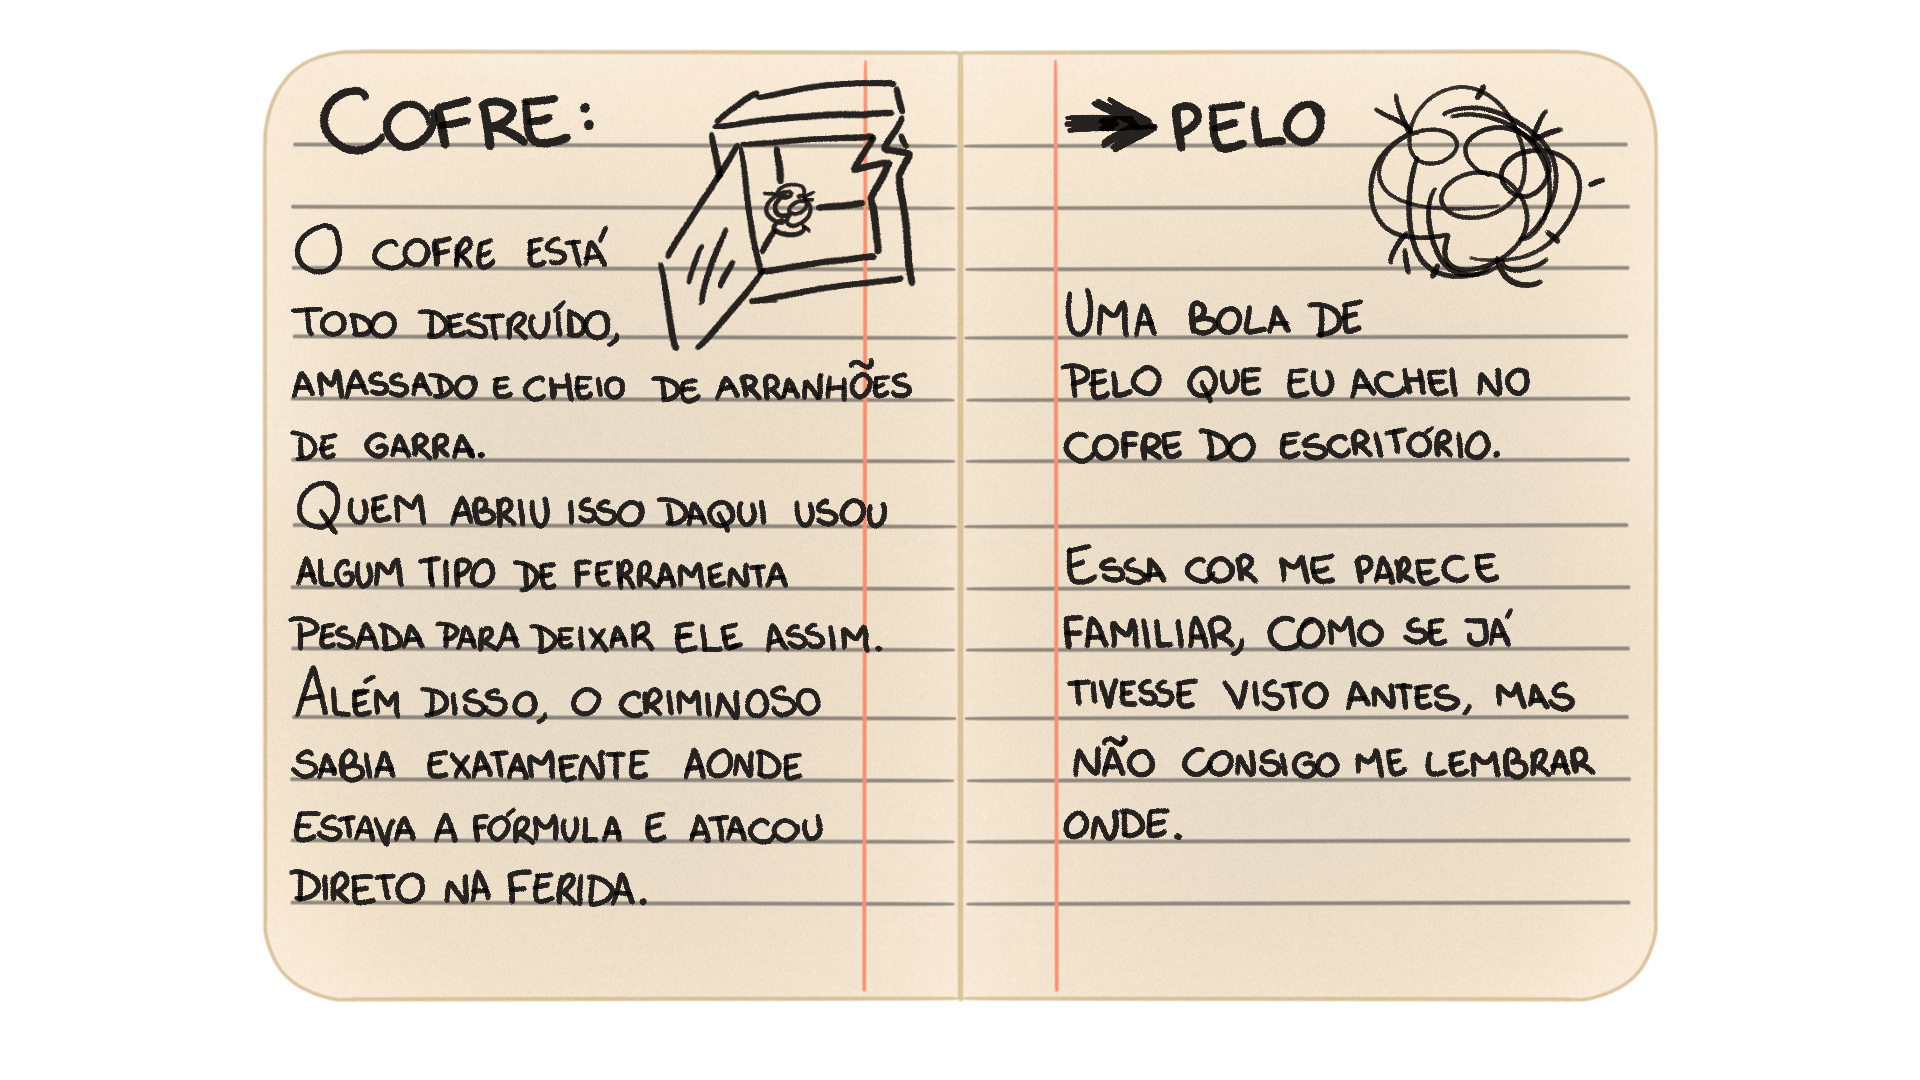 COFRE:
O COFRE ESTÁ
TODO DESTRUÍDO,
AMASSADO E CHEIO DE ARRANHÕES
DE GARRA.
QUEM ABRIU ISSO DAQUI USOU
ALGUM TIPO DE FERRAMENTA
PESADA PARA DEIXAR ELE ASSIM.
ALÉM DISSO, O CRIMINOSO
SABIA EXATAMENTE AONDE
ESTAVA A FÓRMULA E ATACOU
DIRETO NA FERIDA.
PELO
UMA BOLA DE
PELO QUE EU ACHEI NO
COFRE DO ESCRITÓRIO.
ESSA COR ME PARECE
FAMILIAR, COMO SE JÁ
TIVESSE VISTO ANTES, MAS
NÃO CONSIGO ME LEMBRAR
ONDE.